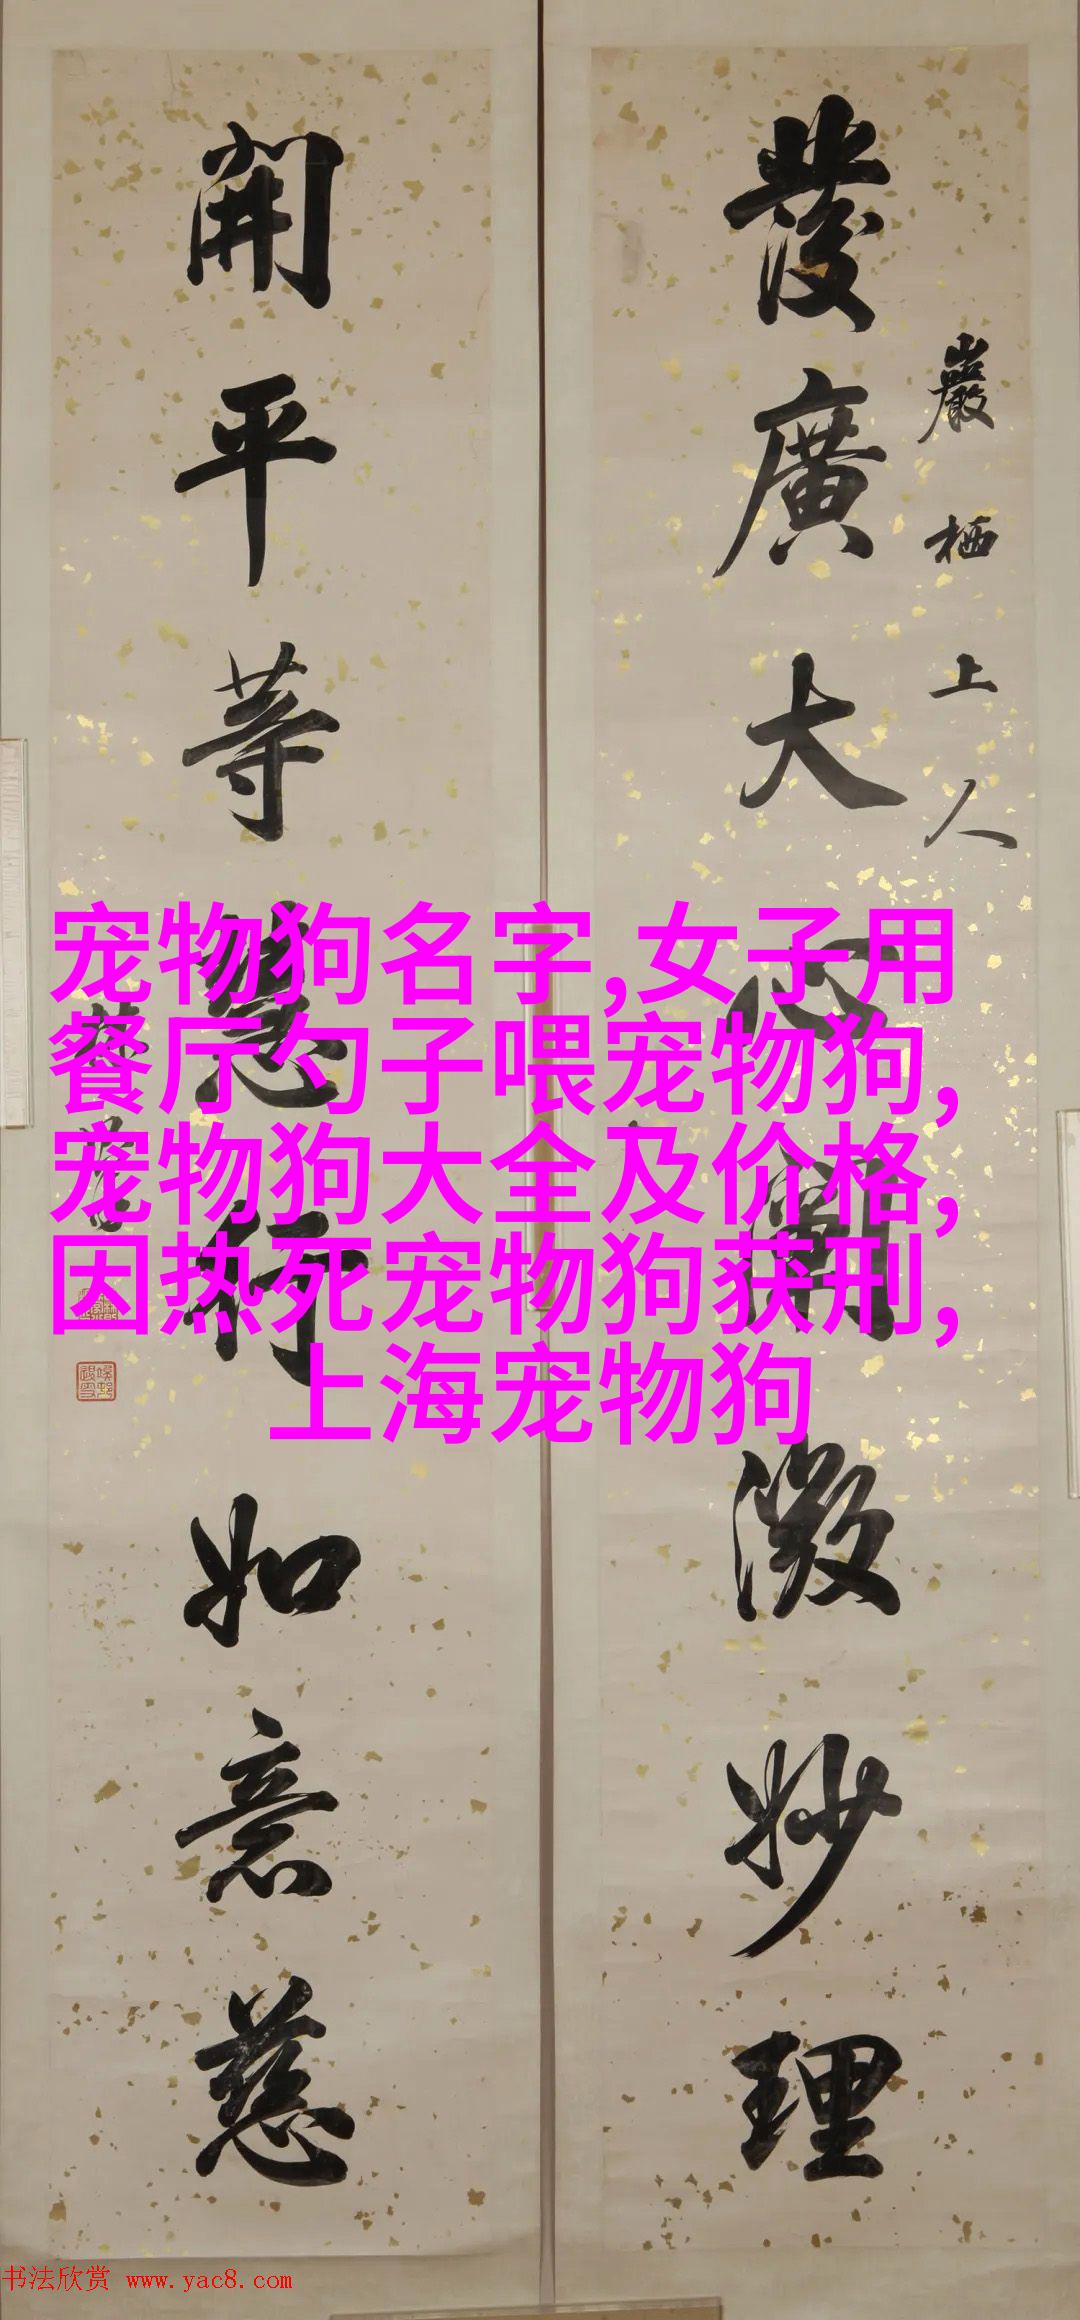 發廣大心闡微妙理
巖栖上人
開平等慧行如意慈
宠物狗名字,女子用
餐厅勺子喂宠物狗,
宠物狗大全及价格,
因热死宠物狗获刑,
上海宠物狗
书法欣赏 www.yac8.com